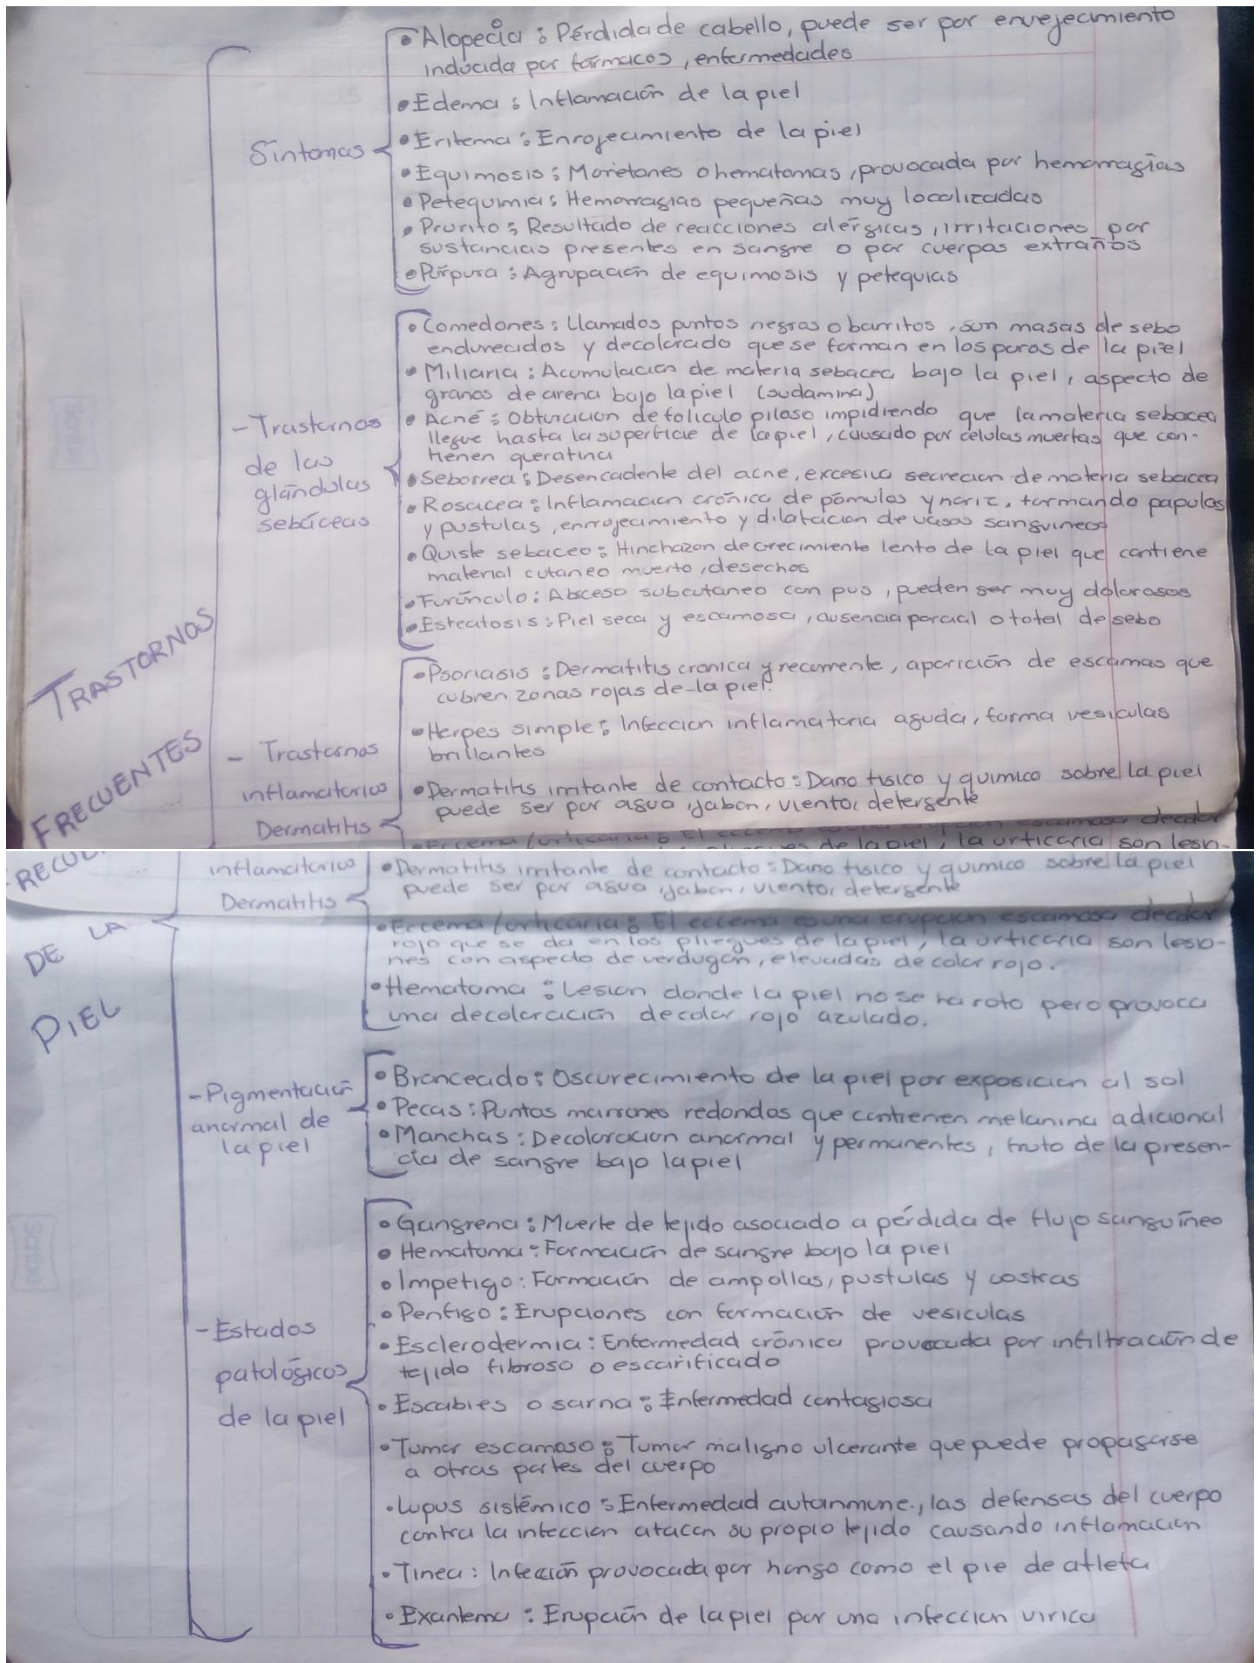 TRASTORNOS
FRECUENTES
Síntomas
• Alopecia : Pérdida de cabello, puede ser por envejecimiento
inducida por fármacos, enfermedades
• Edema : Inflamación de la piel
• Eritema : Enrojecimiento de la piel
• Equimosis : Moretones o hematomas, provocada por hemorragias
• Petequimia : Hemorragias pequeñas muy localizadas
• Prurito : Resultado de reacciones alérgicas, irritaciones por
sustancias presentes en sangre o por cuerpos extraños
• Púrpura : Agrupación de equimosis y petequias
- Trastornos
de las
glándulas
sebáceas
• Comedones : Llamados puntos negros o barritos, son masas de sebo
endurecidos y decolorado que se forman en los poros de la piel
• Miliaria : Acumulación de materia sebacea bajo la piel, aspecto de
granos de arena bajo la piel (sudamina)
• Acné : Obturacion de foliculo piloso impidiendo que la materia sebacea
llegue hasta la superficie de la piel, causado por celulas muertas que con-
tienen queratina
• Seborrea : Desencadente del acne, excesiva secrecion de materia sebacea
• Rosacea : Inflamacion crónica de pómulos y nariz, formando papulas
y pustulas, enrrojecimiento y dilatacion de vasos sanguineos
• Quiste sebaceo : Hinchazon de crecimiento lento de la piel que contiene
material cutaneo muerto, desechos
• Furúnculo : Absceso subcutaneo con pus, pueden ser muy dolorosos
• Esteatosis : Piel seca y escamosa, ausencia parcial o total de sebo
- Trastornos
inflamatorios
Dermatitis
• Psoriasis : Dermatitis cronica y recurrente, aparición de escamas que
cubren zonas rojas de la piel.
• Herpes simple : Infeccion inflamatoria aguda, forma vesiculas
brillantes
• Dermatitis irritante de contacto : Daño fisico y quimico sobre la piel
puede ser por agua, jabon, viento, detergente
de la piel, la urticaria son lesio-
inflamatorios
Dermatitis
• Dermatitis irritante de contacto : Daño fisico y quimico sobre la piel
puede ser por agua, jabon, viento, detergente
DE LA
PIEL
• Eccema/urticaria : El eccema es una erupcion escamosa de color
rojo que se da en los pliegues de la piel, la urticaria son lesio-
nes con aspecto de verdugón, elevadas de color rojo.
• Hematoma : Lesion donde la piel no se ha roto pero provoca
una decoloración de color rojo azulado.
- Pigmentación
anormal de
la piel
• Bronceado : Oscurecimiento de la piel por exposicion al sol
• Pecas : Puntos marrones redondos que contienen melanina adicional
• Manchas : Decoloracion anormal y permanentes, fruto de la presen-
cia de sangre bajo la piel
- Estados
patológicos
de la piel
• Gangrena : Muerte de tejido asociado a pérdida de flujo sanguíneo
• Hematoma : Formación de sangre bajo la piel
• Impetigo : Formación de ampollas, pustulas y costras
• Penfigo : Erupciones con formación de vesiculas
• Esclerodermia : Enfermedad crónica provocada por infiltración de
tejido fibroso o escarificado
• Escabies o sarna : Enfermedad contagiosa
• Tumor escamoso : Tumor maligno ulcerante que puede propagarse
a otras partes del cuerpo
• Lupus sistémico : Enfermedad autoinmune, las defensas del cuerpo
contra la infeccion atacan su propio tejido causando inflamacion
• Tinea : Infección provocada por hongo como el pie de atleta
• Exantema : Erupción de la piel por una infeccion virica